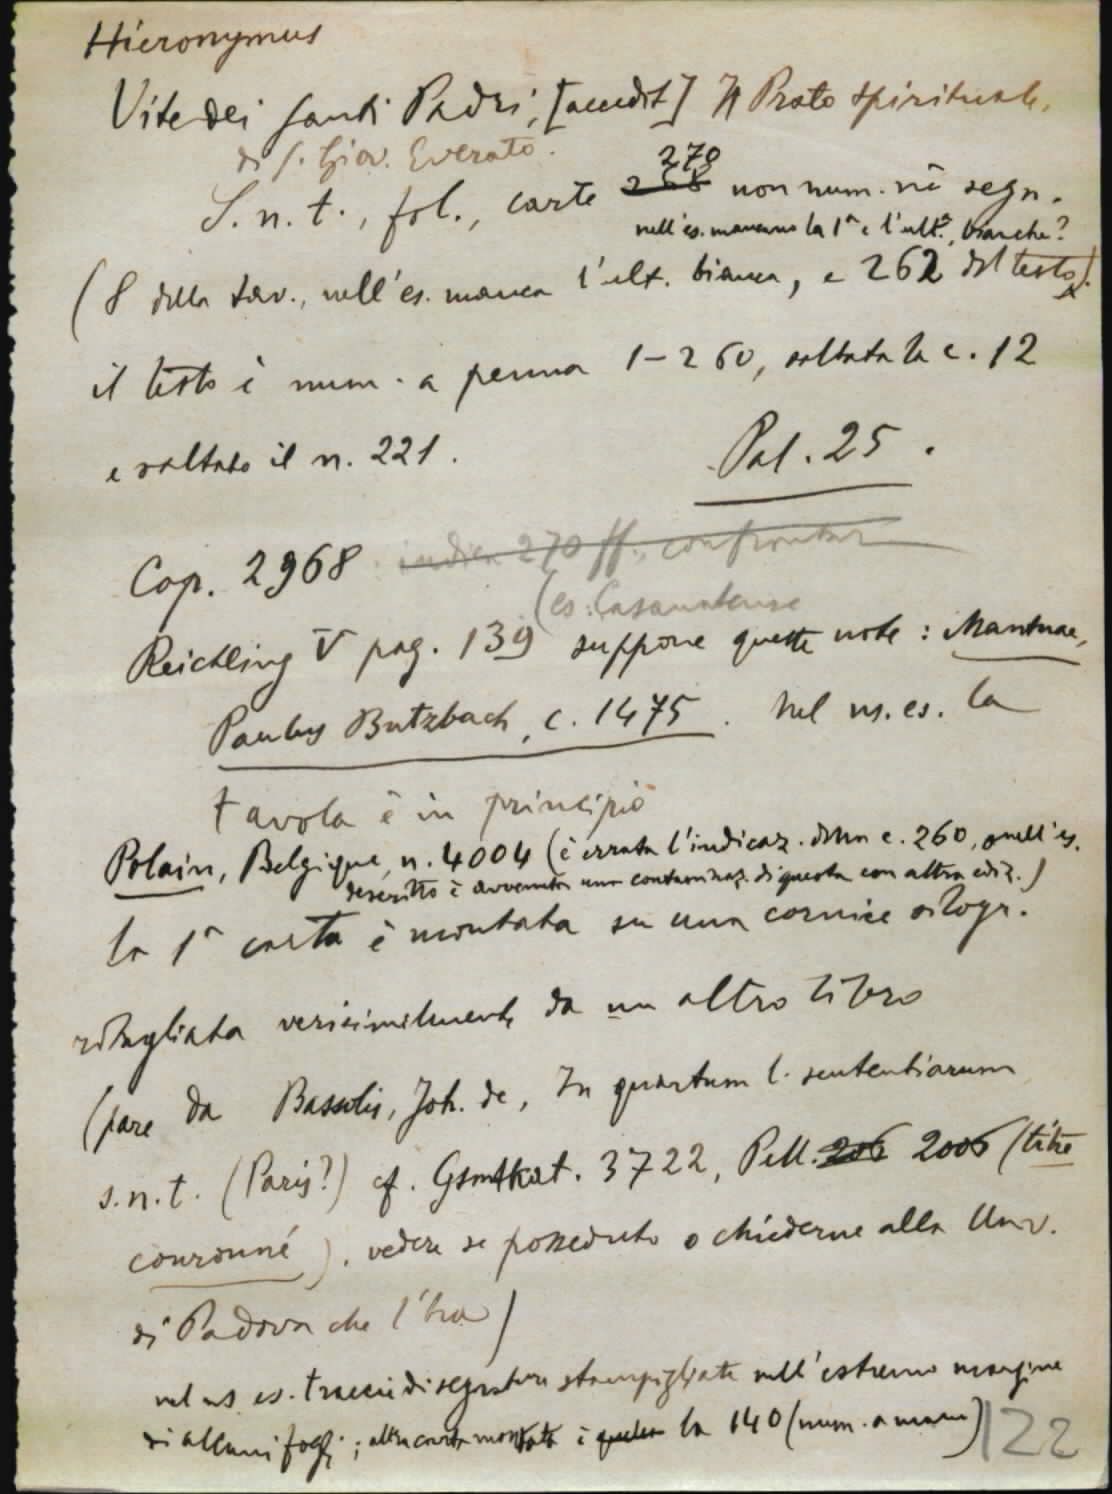 Hieronymus
Vite dei Santi Padri, [accedit] Il Prato spirituale,
di S. Giov. Everato.
270
S. n. t., fol., carte 268 non num. nè segn.
nell'es. mancano la 1ª e l'ultª, bianche?
(8 della tav., nell'es. manca l'ult. bianca, e 262 del testo).
il testo è num. a penna 1-260, saltata la c. 12
e saltato il n. 221.
Pal. 25.
Cop. 2968 indica 270 ff., confrontar
(es. Casanatense
Reichling V pag. 139 suppone queste note: Mantuae,
Paulus Butzbach, c. 1475. Nel ns. es. la
tavola è in principio
Polain, Belgique, n. 4004 (è errata l'indicaz. della c. 260, nell'es.
descritto è avvenuta una contaminaz. di questa con altra ediz.)
la 1ª carta è montata su una cornice silogr.
ritagliata verisimilmente da un altro libro
(pare da Bassolis, Joh. de, In quartum l. sententiarum
s.n.t. (Paris?) cf. Gsmtkat. 3722, Pell. 206 2006 (titre
couronné). vedere se posseduto o chiederne alla Univ.
di Padova che l'ha)
nel ns es. traccie di segnature stampigliate nell'estremo margine
di alcuni fogli; altra carta montata è quella la 140 (num. a mano)
122